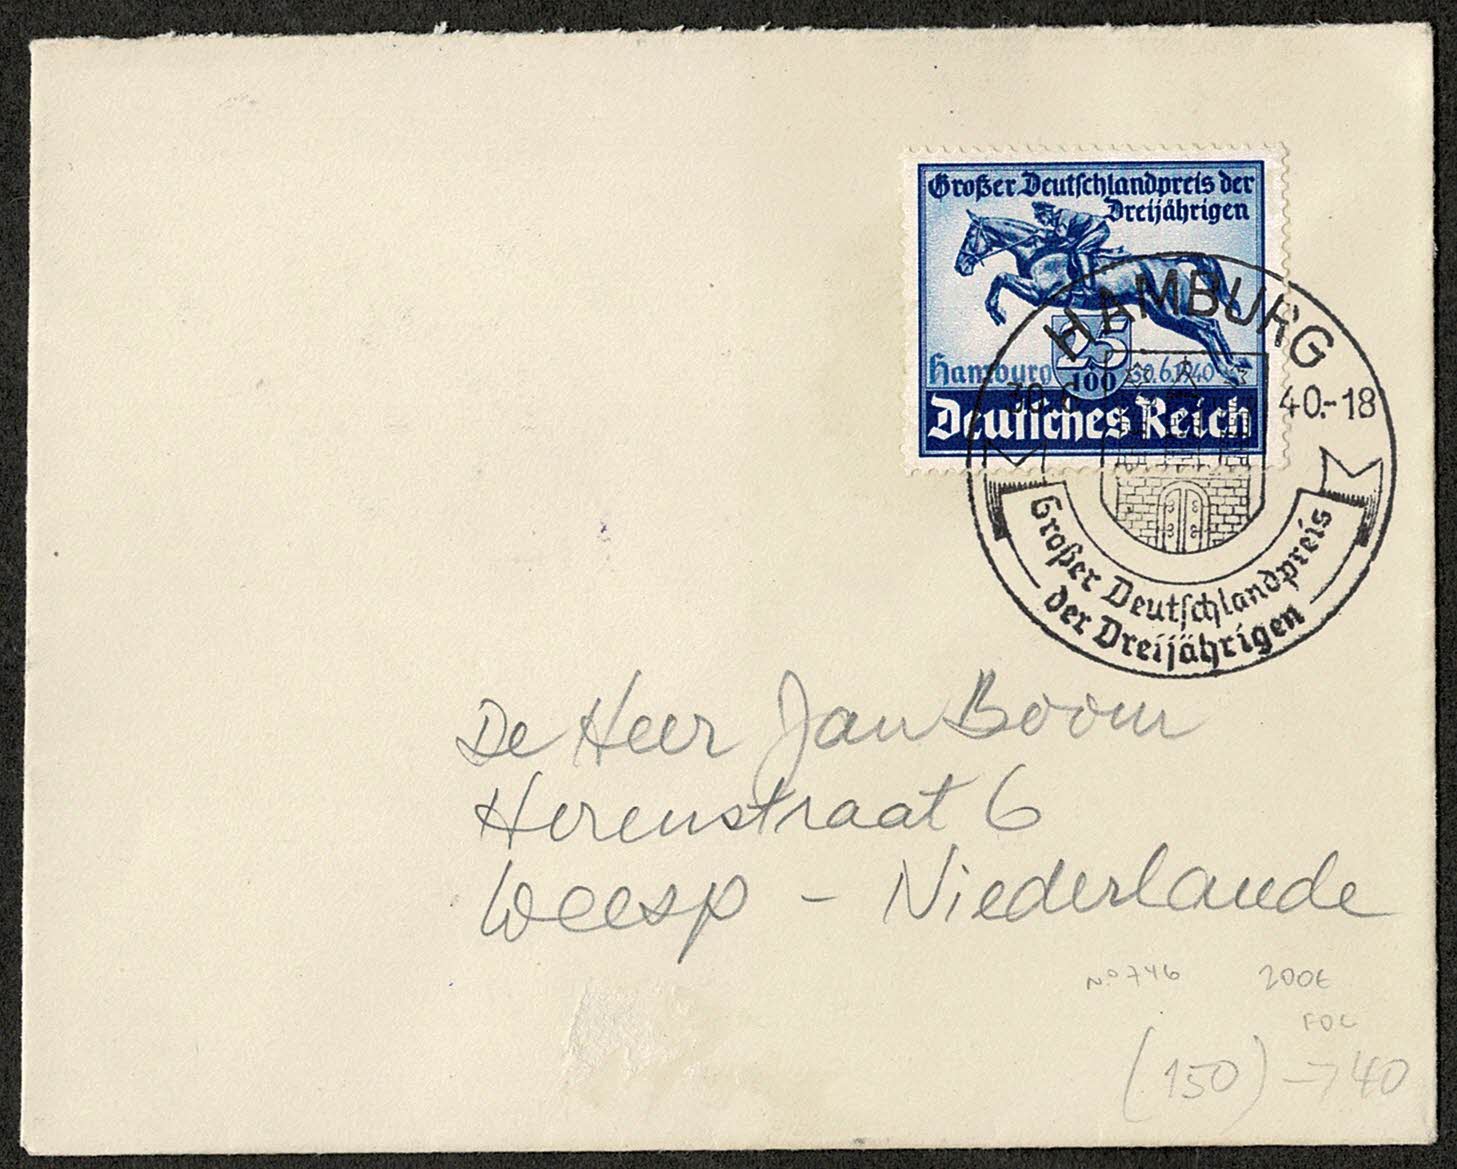 Großer Deutschlandpreis der
Dreijährigen
25
100
Hamburg 30.6.1940
Deutsches Reich
HAMBURG
30.6. 40.-18
Großer Deutschlandpreis
der Dreijährigen
De Heer Jan Boom
Herenstraat 6
Weesp - Niederlande
No 746 200€
FDC
(150) → 40